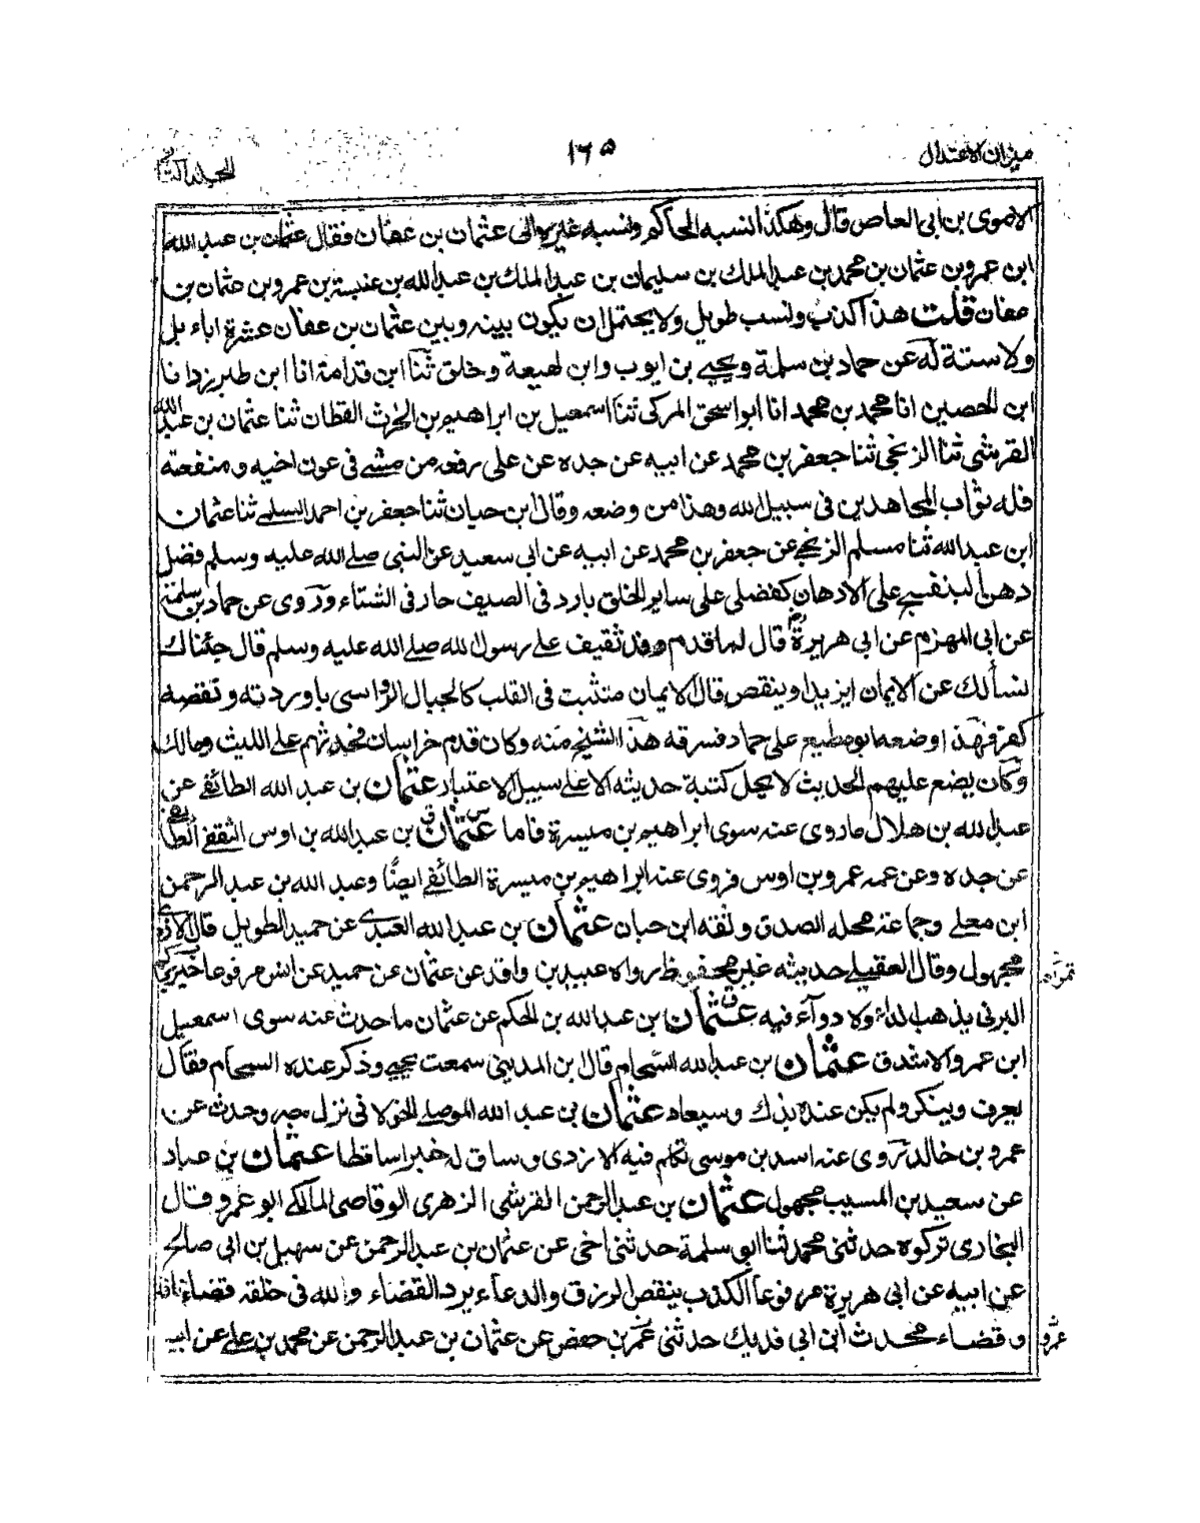 ميزان الاعتدال
١٦٥
المجلد الثاني
الاموى بن ابى العاص قال وهكذا نسبه الحاكم ونسبه غيره الى عثمان بن عفان فقال عثمان بن عبد الله
ابن عمرو بن عثمان بن محمد بن عبد الملك بن سليمان بن عبد الملك بن عبد الله بن عنبسة بن عمرو بن عثمان بن
عفان قلت هذا كذب ونسب طويل ولا يحتمل ان يكون بينه وبين عثمان بن عفان عشرة اباء بل
ولا ستة له عن حماد بن سلمة ويحيى بن ايوب وابن لهيعة وخلق ثنا ابن قدامة انا ابن طبرزد انا
ابن الحصين انا محمد بن محمد انا ابو اسحق المزكى ثنا اسمعيل بن ابراهيم بن الحرث القطان ثنا عثمان بن عبد الله
القرشى ثنا الزنجى ثنا جعفر بن محمد عن ابيه عن جده عن على رفعه من مشى فى عون اخيه ومنفعته
فله ثواب المجاهدين فى سبيل الله وهذا من وضعه وقال ابن حبان ثنا جعفر بن احمد السلمى ثنا عثمان
ابن عبد الله ثنا مسلم الزنجى عن جعفر بن محمد عن ابيه عن ابى سعيد عن النبى صلى الله عليه وسلم فضل
دهن البنفسج على الادهان كفضلى على ساير الخلق بارد فى الصيف حار فى الشتاء وروى عن حماد بن سلمة
عن ابى المهزم عن ابى هريرة قال لما قدم وفد ثقيف على رسول الله صلى الله عليه وسلم قال جئناك
نسألك عن الايمان ايزيد او ينقص قال الايمان مثبت فى القلب كالجبال الرواسى وزيادته ونقصه
كفر فهذا وضعه ابو مطيع على حماد فسرقه هذا الشيخ منه وكان قدم خراسان فحدثهم على الليث ومالك
وكان يضع عليهم الحديث لا يحل كتبة حديثه الا على سبيل الاعتبار عثمان بن عبد الله الطائفى عن
عبد الله بن هلال ما روى عنه سوى ابراهيم بن ميسرة فاما عثمان بن عبد الله بن اوس الثقفى الطائفى
عن جده وعن عمه عمرو بن اوس فروى عنه ابراهيم بن ميسرة الطائفى ايضًا وعبد الله بن عبد الرحمن
ابن معلى وجماعة محله الصدق وثقه ابن حبان عثمان بن عبد الله العبدى عن حميد الطويل قال الازدى
مجهول وقال العقيلى حديثه غير محفوظ رواه عبيد بن واقد عن عثمان عن حميد عن انس مرفوعا خير
تمراتكم
البرنى يذهب الداء ولا دواء فيه عثمان بن عبد الله بن الحكم عن عثمان ما حدث عنه سوى اسمعيل
ابن عمرو الاشدق عثمان بن عبد الله الشحام قال بن المدينى سمعت يحيى وذكر عنده الشحام فقال
يعرف وينكر ولم يكن عنده بذاك وسيعاد عثمان بن عبد الله الموصلى الخولانى نزل مصر وحدث عن
عمرو بن خالد روى عنه اسد بن موسى تكلم فيه الازدى وساق له خبرا ساقطا عثمان بن عباد
عن سعيد بن المسيب مجهول عثمان بن عبد الرحمن القرشى الزهرى الوقاصى المالكى ابو عمرو قال
البخارى تركوه حدثنى محمد ثنا ابو سلمة حدثنى اخى عن عثمان بن عبد الرحمن عن سهيل بن ابى صالح
عن ابيه عن ابى هريرة مرفوعا الكذب ينقص الرزق والدعاء يرد القضاء ولله فى خلقه قضاء نافذ
وقضاء محدث ابن ابى فديك حدثنى عمر بن حفص عن عثمان بن عبد الرحمن عن محمد بن على عن ابيه
عمرو